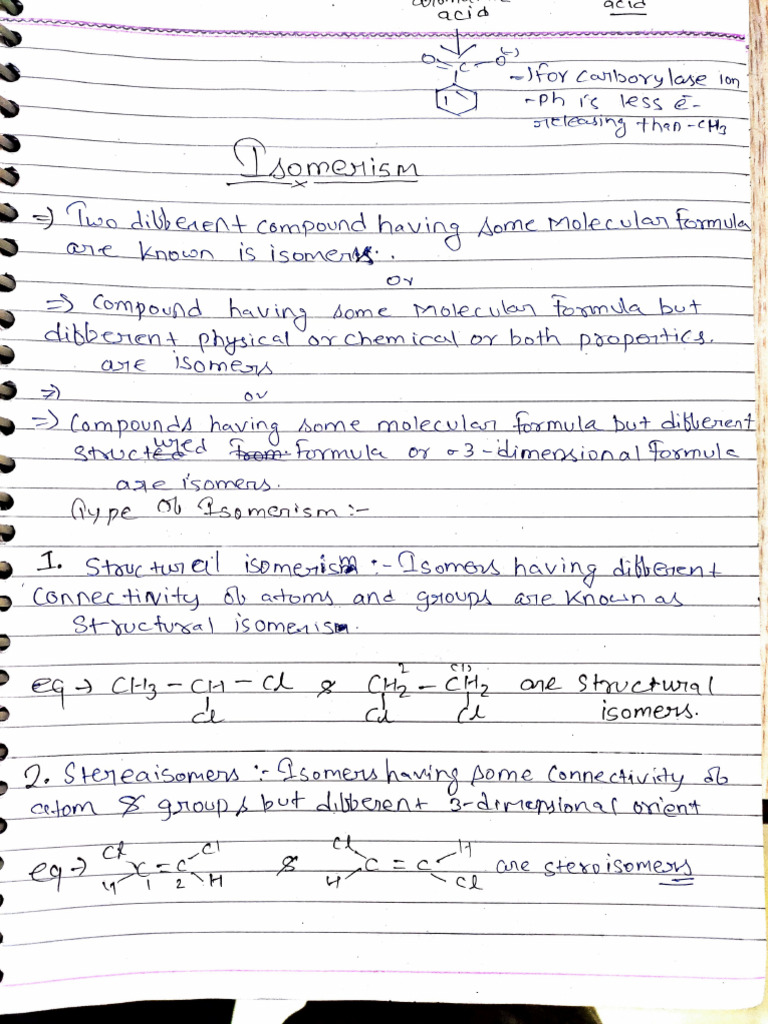 acid
acid
O=C-O(-)
→) for carboxylase ion
-Ph is less ē-
releasing than -CH3
Isomerism
⇒ Two different compound having some Molecular formula
are known is isomers.
Or
⇒ Compound having some Molecular formula but
different physical or chemical or both properties.
are isomers
⇒) or
⇒ Compounds having some molecular formula but different
structured from formula or 3-dimensional formula
are isomers.
Type of Isomerism :-
1. Structural isomerism :- Isomers having different
connectivity of atoms and groups are known as
structural isomerism.
eg → CH3 - CH - Cl & CH2 - CH2 are structural
Cl Cl Cl isomers.
2. Stereaisomers :- Isomers having some connectivity of
atom & groups but different 3-dimensional orient
eg → Cl Cl & Cl H
C = C C = C are steroisomers
H 1 2 H H Cl